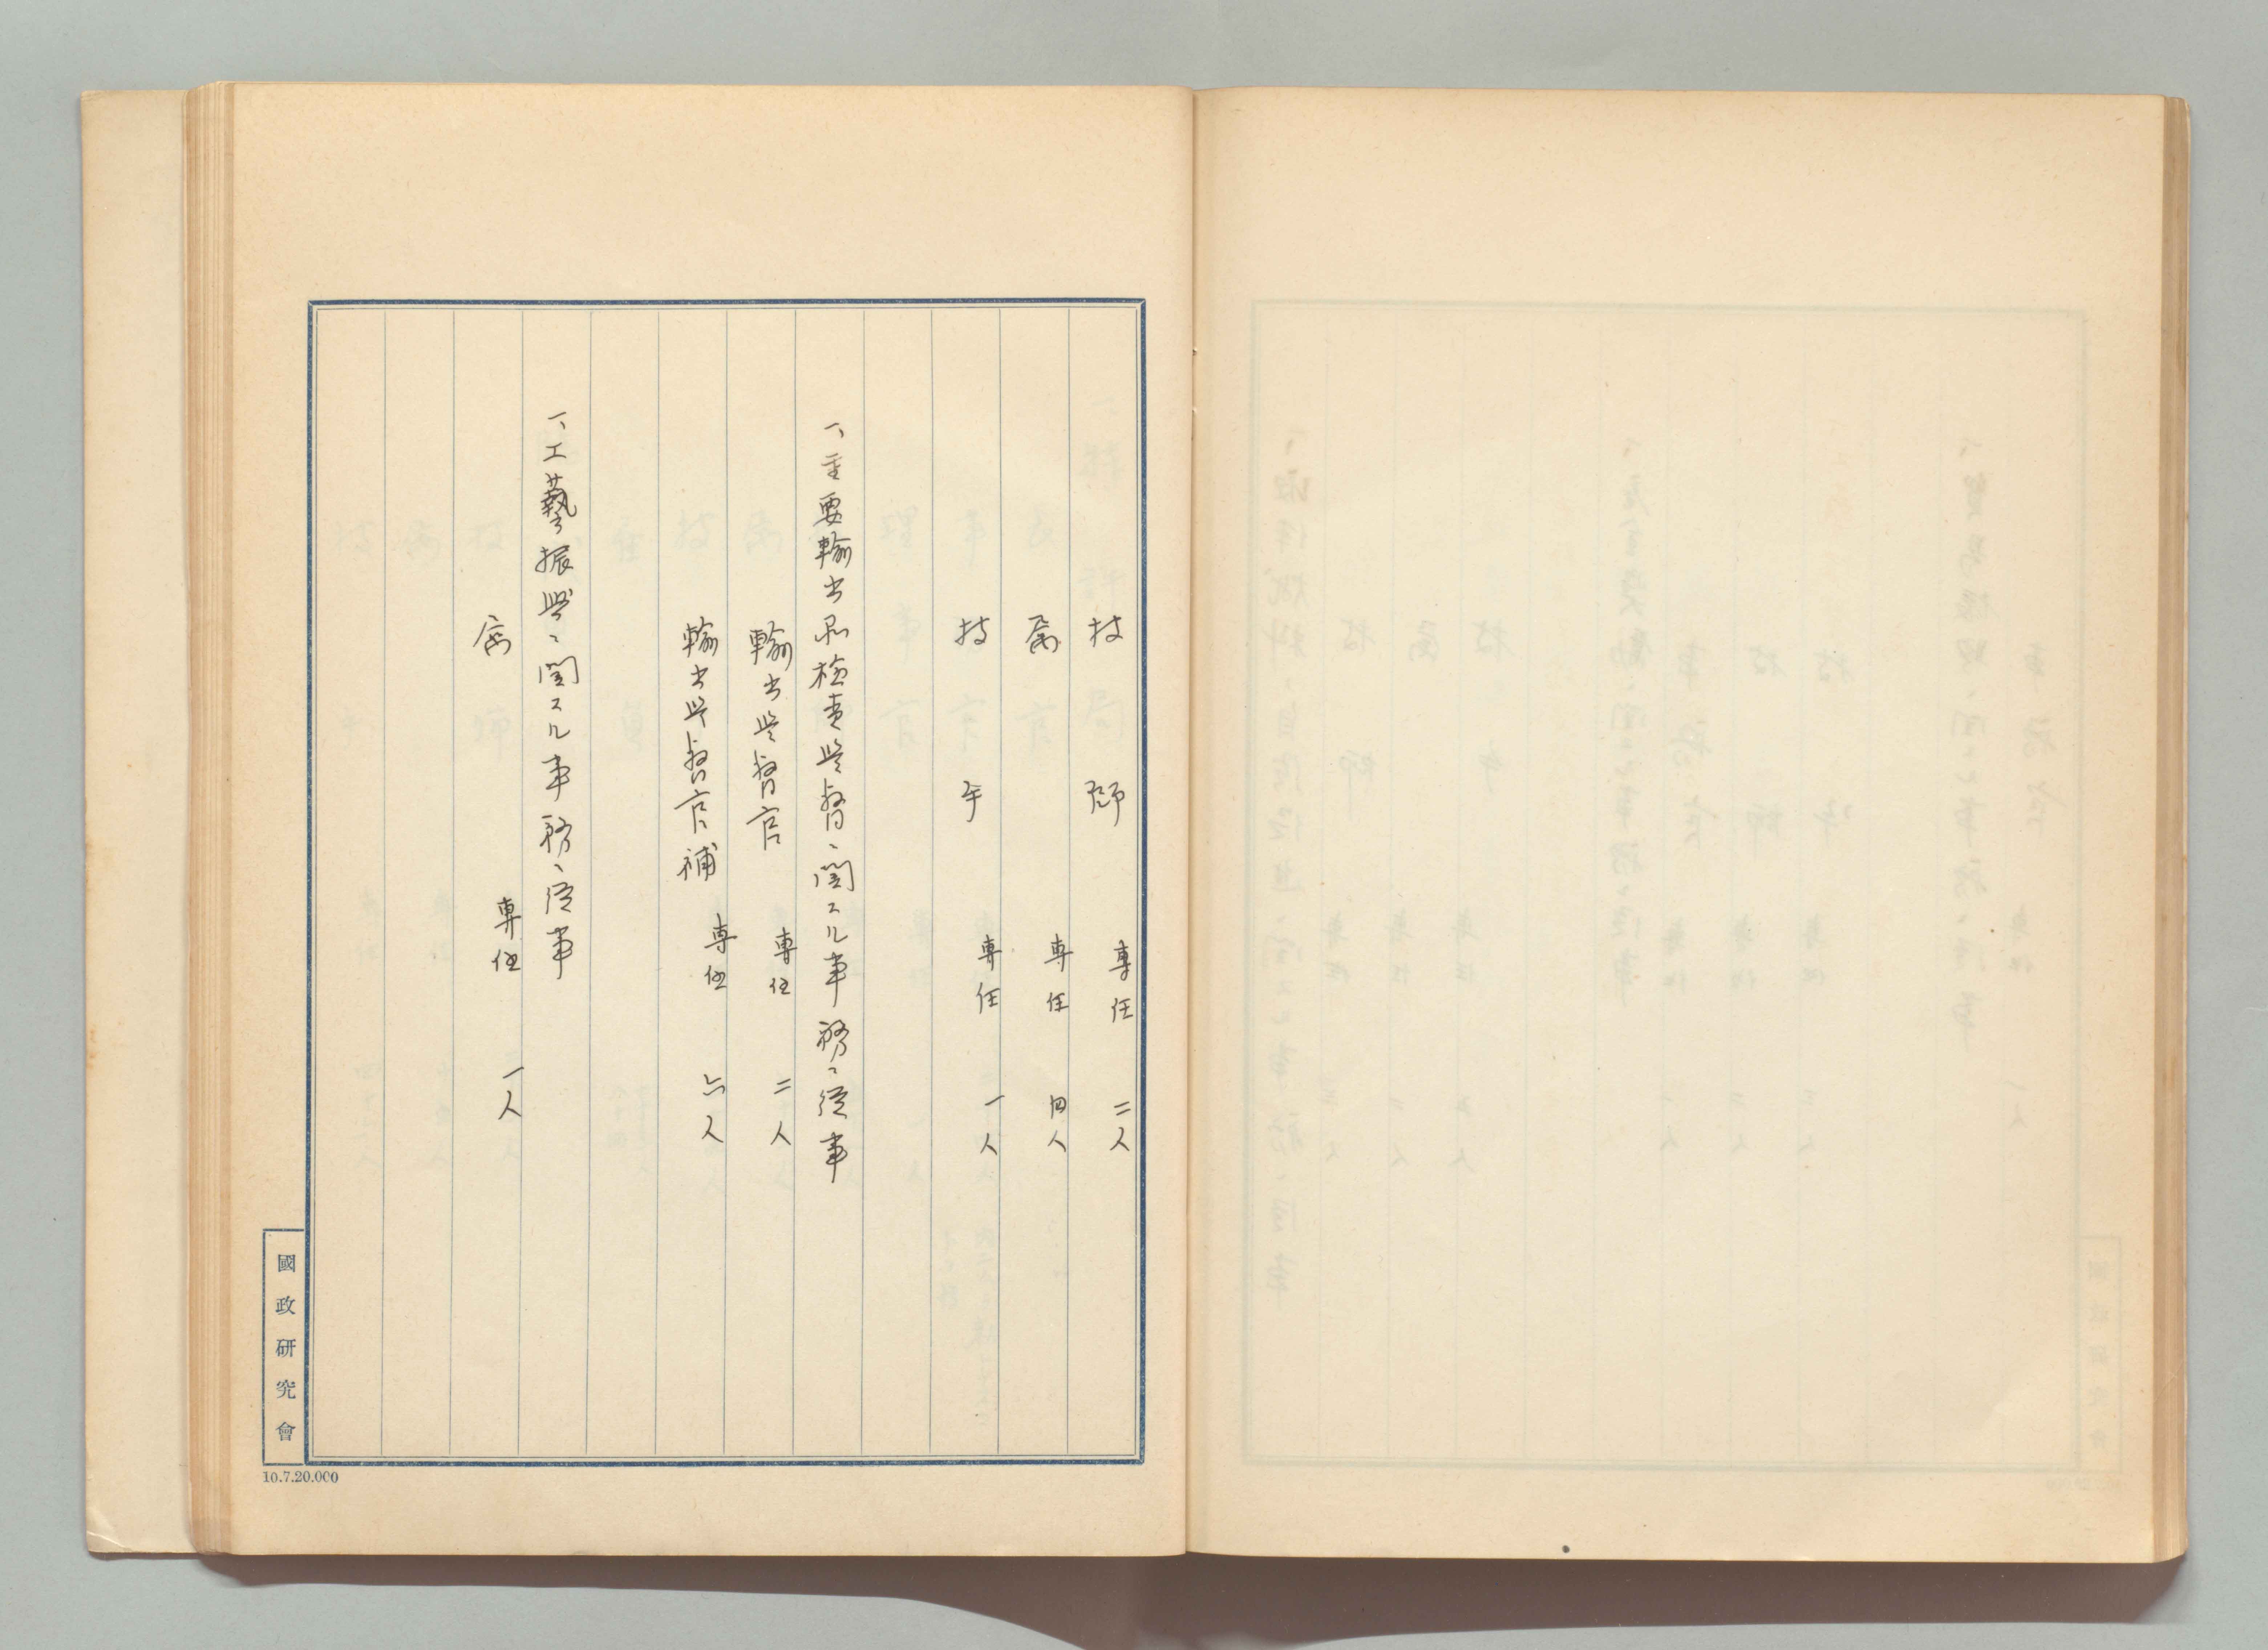 技師 専任 二人
属 専任 四人
技手 専任 一人
一、主要輸出品検査監督ニ関スル事務ニ従事
輸出監督官 専任 二人
輸出監督官補 専任 六人
一、工藝振興ニ関スル事務ニ従事
属 専任 一人
國政研究會
10.7.20.000